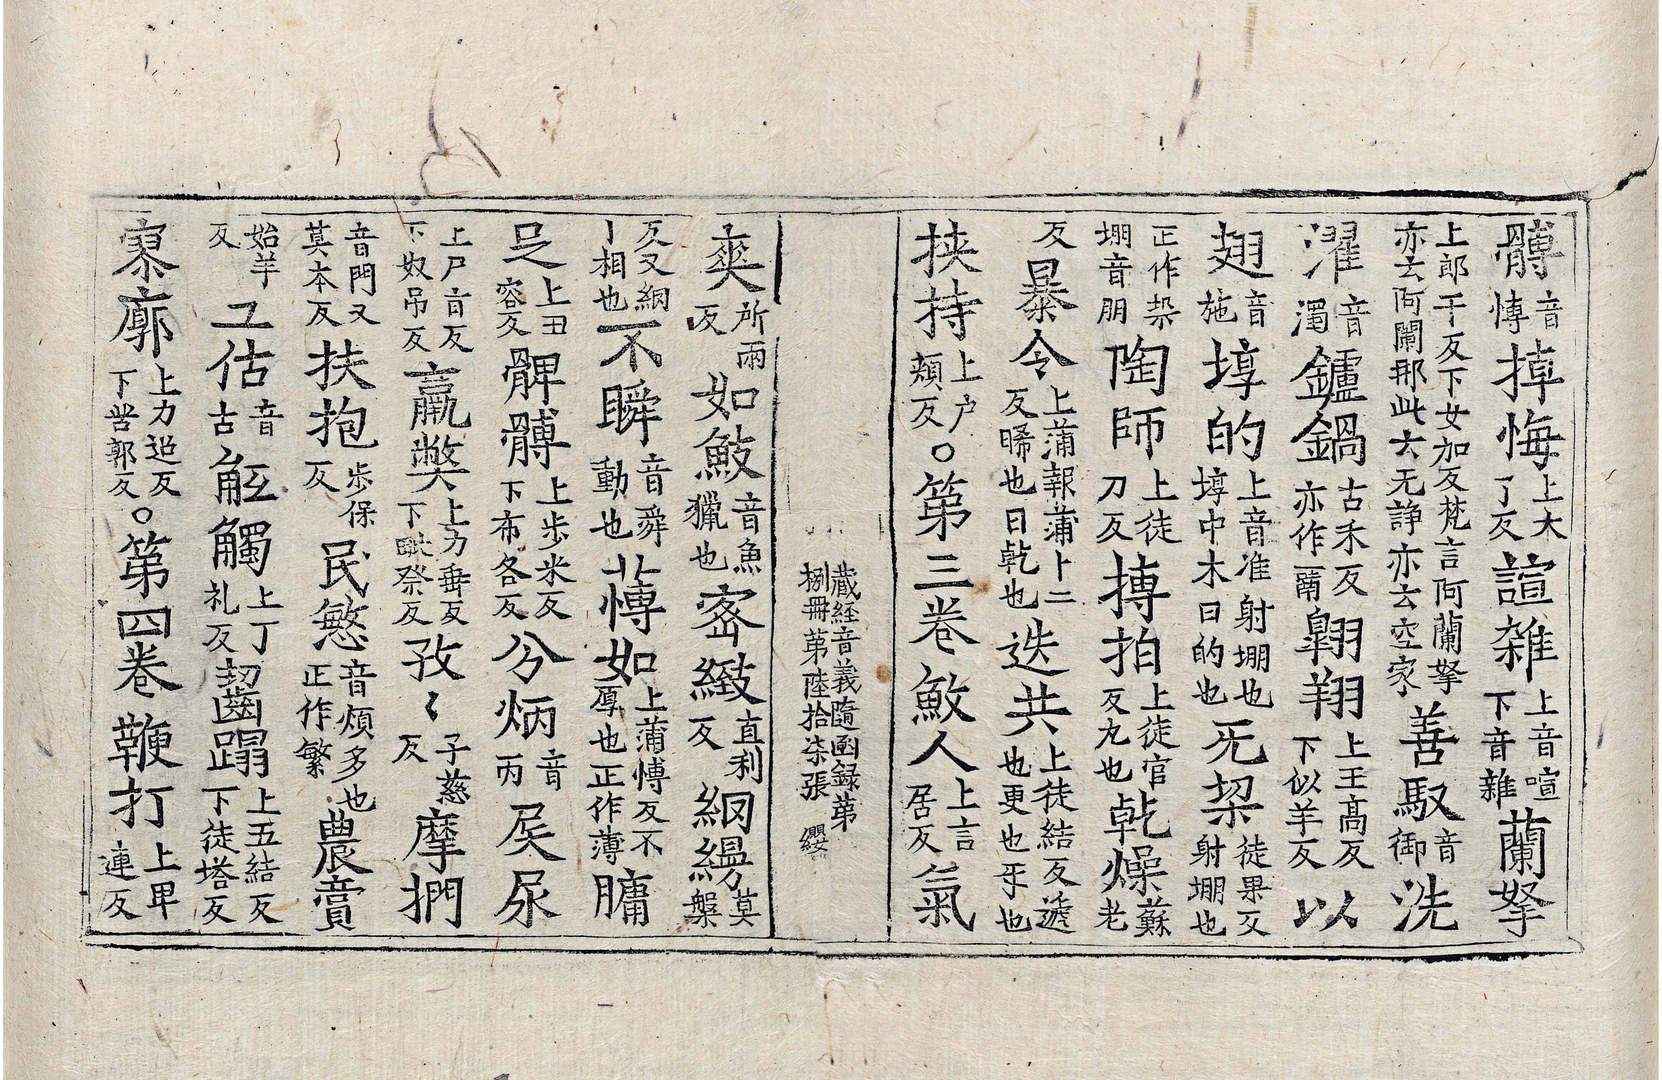 髆音愽掉悔上大了反諠雜上音喧下音雜蘭拏
上郎干反下女加反梵言阿蘭拏亦云阿闌那此云无諍亦云空家善馭音御洗
濯音濁鑪鍋古禾反亦作䰛翺翔上王高反下似羊反以
翅音施埻的上音准射堋也埻中木曰的也死挅徒果反射堋也
正作垜堋音朋陶師上徒刀反摶拍上徒官反丸也乹燥蘇老
反暴令上蒲報蒲卜二反晞也日乹也迭共上徒結反遞也更也㸦也
挾持上户頰反○第三卷㪉人上言居反氣
藏經音義隨函録第捌冊第陸拾柒張 纓
爽所兩反如䱷音魚獵也宻緻直利反網縵莫槃
反又網丨相也不瞬音舜動也䔽如上蒲愽反不厚也正作薄𦟛
𠯁上丑容反髀髆上步米反下布各反分炳音丙㞋尿
上尸旨反下奴吊反羸獘上力垂反下毗祭反孜〻子慈反摩捫
音門又莫本反扶抱步保反民慜音煩多也正作繁農賣
始羊反工估音古觝觸上丁礼反齧蹋上五結反下徒塔反
寮廓上力迢反下苦郭反○第四卷鞭打上𤰞連反